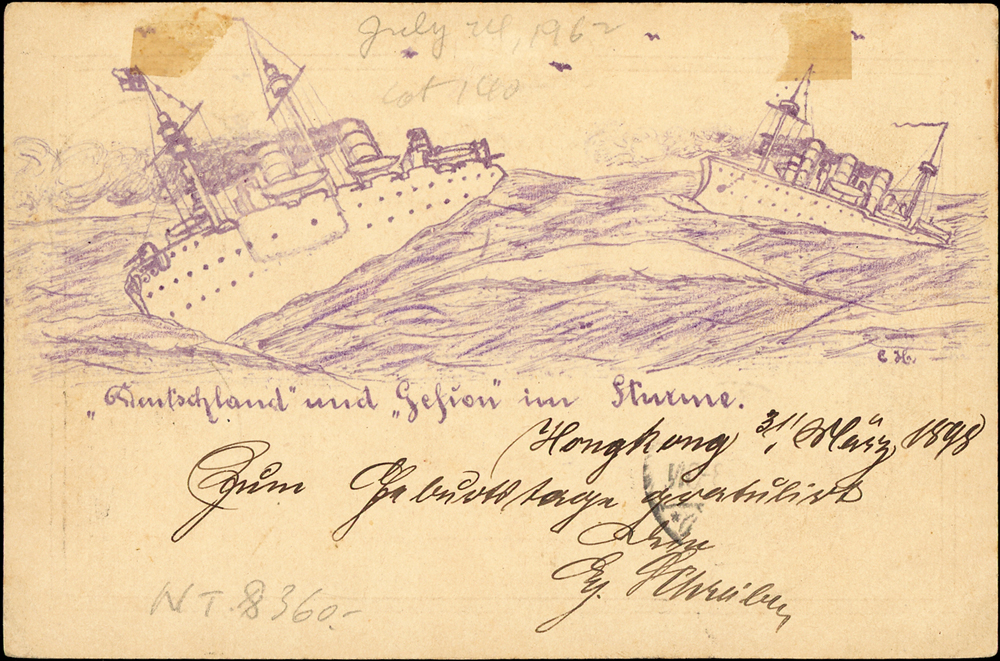 July 24, 1962
Lot 140
C H.
„Deutschland" und „Gefion" im Sturme.
Hongkong 31. März 1898
Zum Geburtstage gratulirt
Dein
Schreiber
NT $360.-